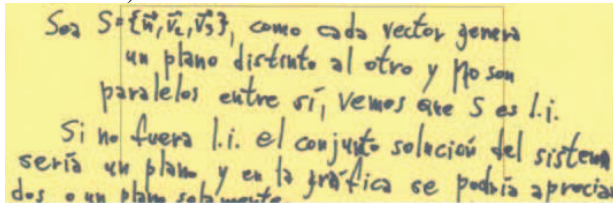 Sea S={n⃗,v⃗₂,v⃗₃}, como cada vector genera
un plano distinto al otro y no son
paralelos entre sí, vemos que S es l.i.
Si no fuera l.i. el conjunto solución del sistema
sería un plano y en la gráfica se podría apreciar
dos o un plano solamente.